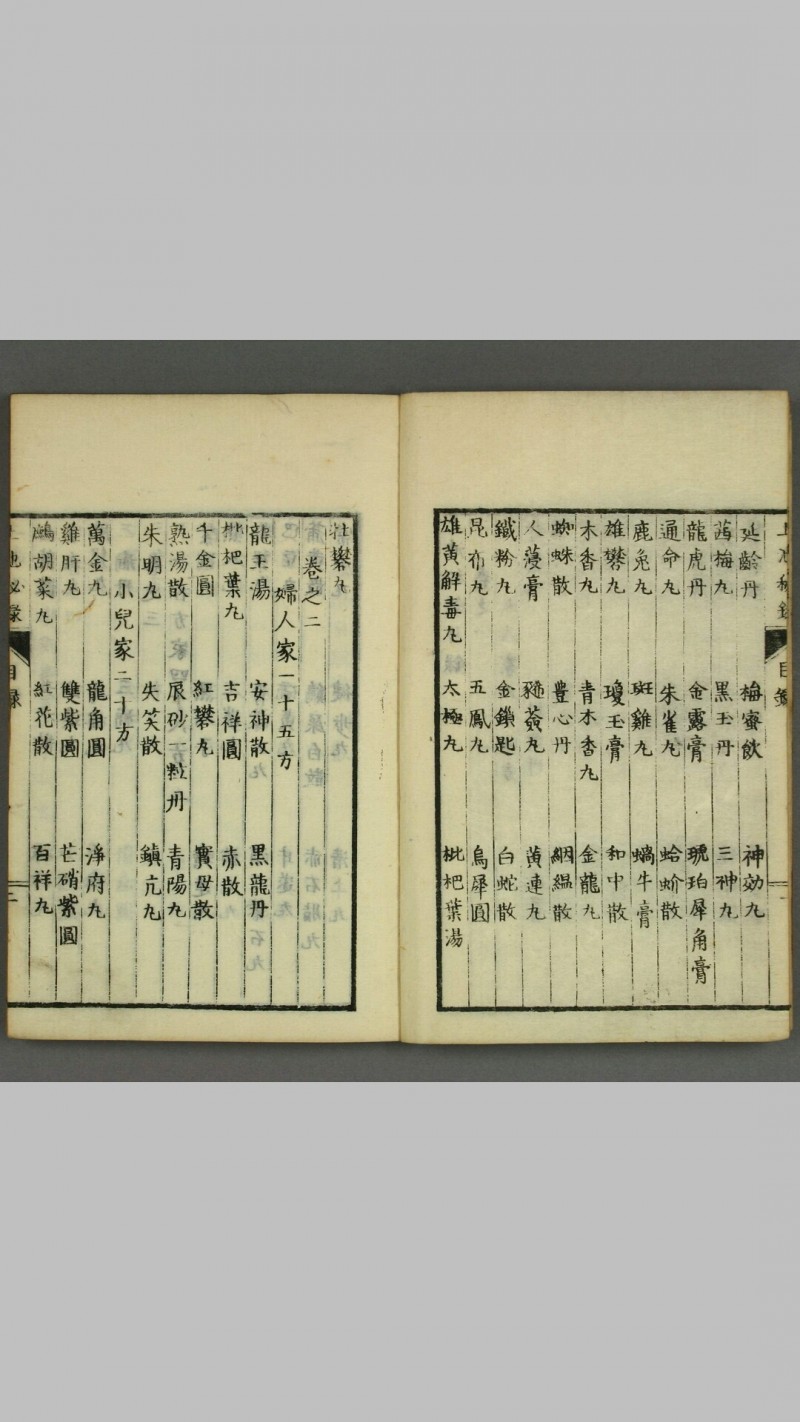 延齡丹 梅蜜飲 神効九
茜梅九 黑玉丹 三神九
龍虎丹 金露膏 琥珀犀角膏
通命九 朱雀九 蛤蚧散
鹿兔九 斑雞九 蝸牛膏
雄礬九 瓊玉膏 和中散
木香九 青木香九 金龍九
蜘蛛散 豊心丹 絪縕散
人蓡膏 豨薟九 黄連九
鐵粉九 金鎖匙 白蛇散
昆布九 五鳳九 烏犀圓
雄黄解毒九 太極九 枇杷葉湯
目錄
礬九
卷之二
婦人家一十五方
龍王湯 安神散 黑龍丹
枇杷葉九 吉祥圓 赤散
千金圓 紅礬九 寳母散
熟湯散 辰砂一粒丹 青陽九
朱明九 失笑散 鎮亢九
小兒家二十方
萬金九 龍角圓 淨府九
雞肝九 雙紫圓 芒硝紫圓
鷓胡菜九 紅花散 百祥九
目錄